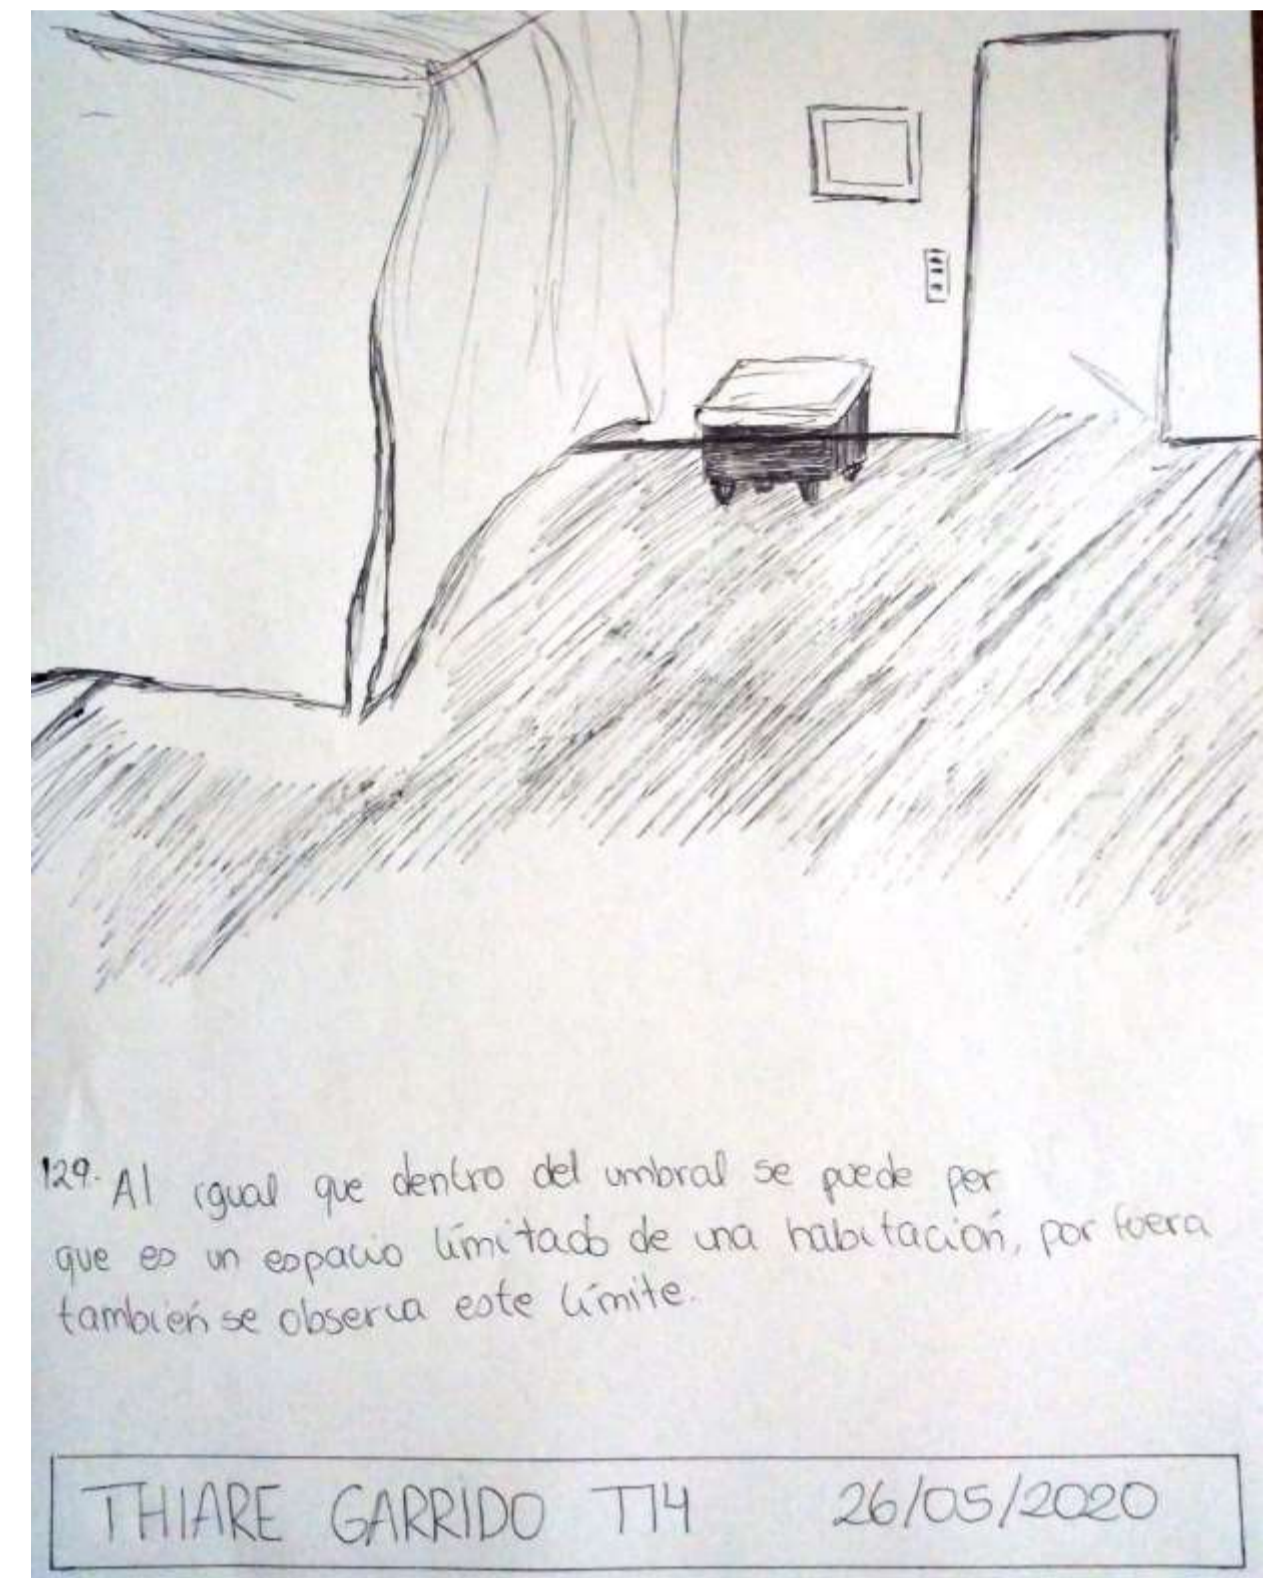 129. Al igual que dentro del umbral se puede per
que es un espacio límitado de una habitación, por fuera
también se observa este límite.
THIARE GARRIDO T14 26/05/2020